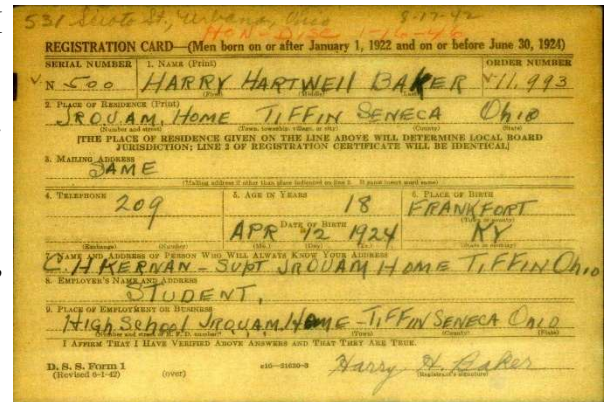 531 Scioto St., Urbana, Ohio 8-17-42
HON-DISC 1-26-46
REGISTRATION CARD—(Men born on or after January 1, 1922 and on or before June 30, 1924)
SERIAL NUMBER 1. NAME (Print) ORDER NUMBER
N 500 HARRY HARTWELL BAKER 11,993
(First) (Middle) (Last)
2. PLACE OF RESIDENCE (Print)
JROUAM. HOME TIFFIN SENECA Ohio
(Number and street) (Town, township, village, or city) (County) (State)
[THE PLACE OF RESIDENCE GIVEN ON THE LINE ABOVE WILL DETERMINE LOCAL BOARD
JURISDICTION; LINE 2 OF REGISTRATION CERTIFICATE WILL BE IDENTICAL]
3. MAILING ADDRESS
SAME
(Mailing address if other than place indicated on line 2. If same insert word same)
4. TELEPHONE 5. AGE IN YEARS 6. PLACE OF BIRTH
209 18 FRANKFORT
DATE OF BIRTH (Town or county)
APR 12 1924 KY
(Exchange) (Number) (Mo.) (Day) (Yr.) (State or country)
7. NAME AND ADDRESS OF PERSON WHO WILL ALWAYS KNOW YOUR ADDRESS
C. H. KERNAN - SUPT JROUAM HOME TIFFIN Ohio
8. EMPLOYER'S NAME AND ADDRESS
STUDENT,
9. PLACE OF EMPLOYMENT OR BUSINESS
High School JROUAM, Home - TIFFIN SENECA OhiO
(Number and street or R. F. D. number) (Town) (County) (State)
I AFFIRM THAT I HAVE VERIFIED ABOVE ANSWERS AND THAT THEY ARE TRUE.
D. S. S. Form 1
(Revised 6-1-42) (over) c16—21630-2 Harry H. Baker
(Registrant's signature)